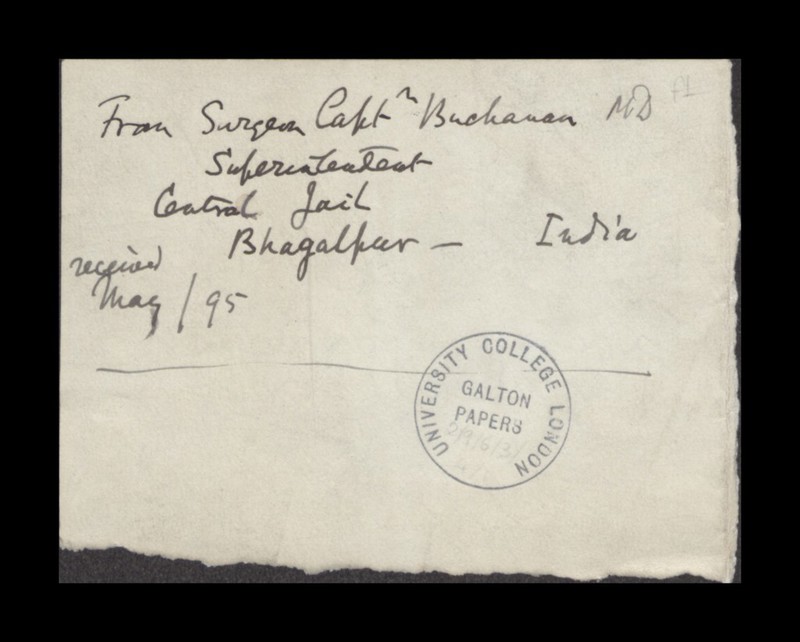 From Surgeon Captn Buchanan MD
Superintendent
Central Jail
Bhagalpur — India
received
May / 95
UNIVERSITY COLLEGE LONDON
GALTON
PAPERS